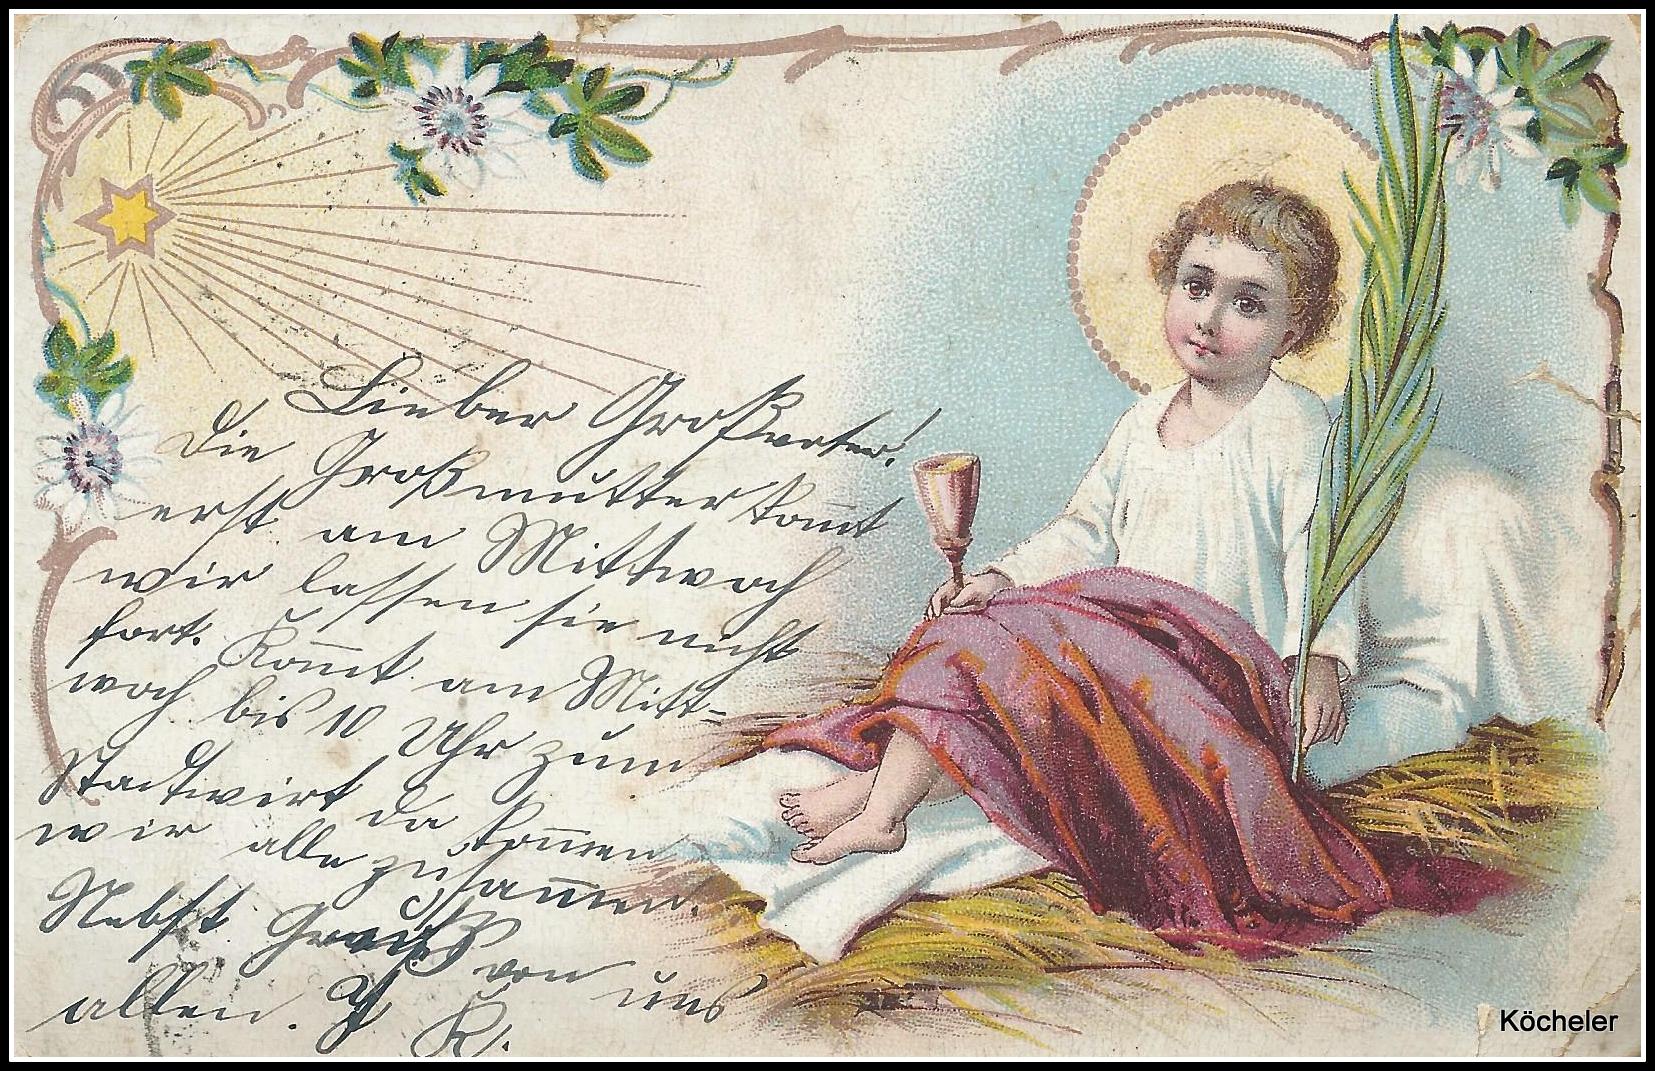 Lieber Großvater!
Die Großmutter kom̄t
erst am Mittwoch
wir lassen sie nicht
fort. Kom̄t am Mitt=
woch bis 10 Uhr zum
Stadtwirt da kom̄en
wir alle zusam̄en.
Nebst Gruß von uns
allen. J K.
Köcheler